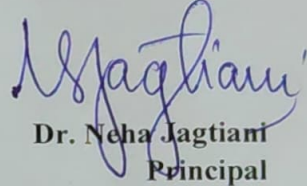 NJagtiani
Dr. Neha Jagtiani
Principal